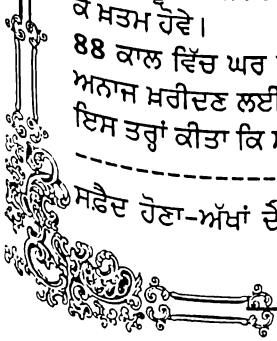 ਕੇ ਖ਼ਤਮ ਹੋਵੇ।
88 ਕਾਲ ਵਿੱਚ ਘਰ
ਅਨਾਜ ਖ਼ਰੀਦਣ ਲਈ
ਇਸ ਤਰ੍ਹਾਂ ਕੀਤਾ ਕਿ
--------------------
ਸਫ਼ੈਦ ਹੋਣਾ-ਅੱਖਾਂ ਦੇ